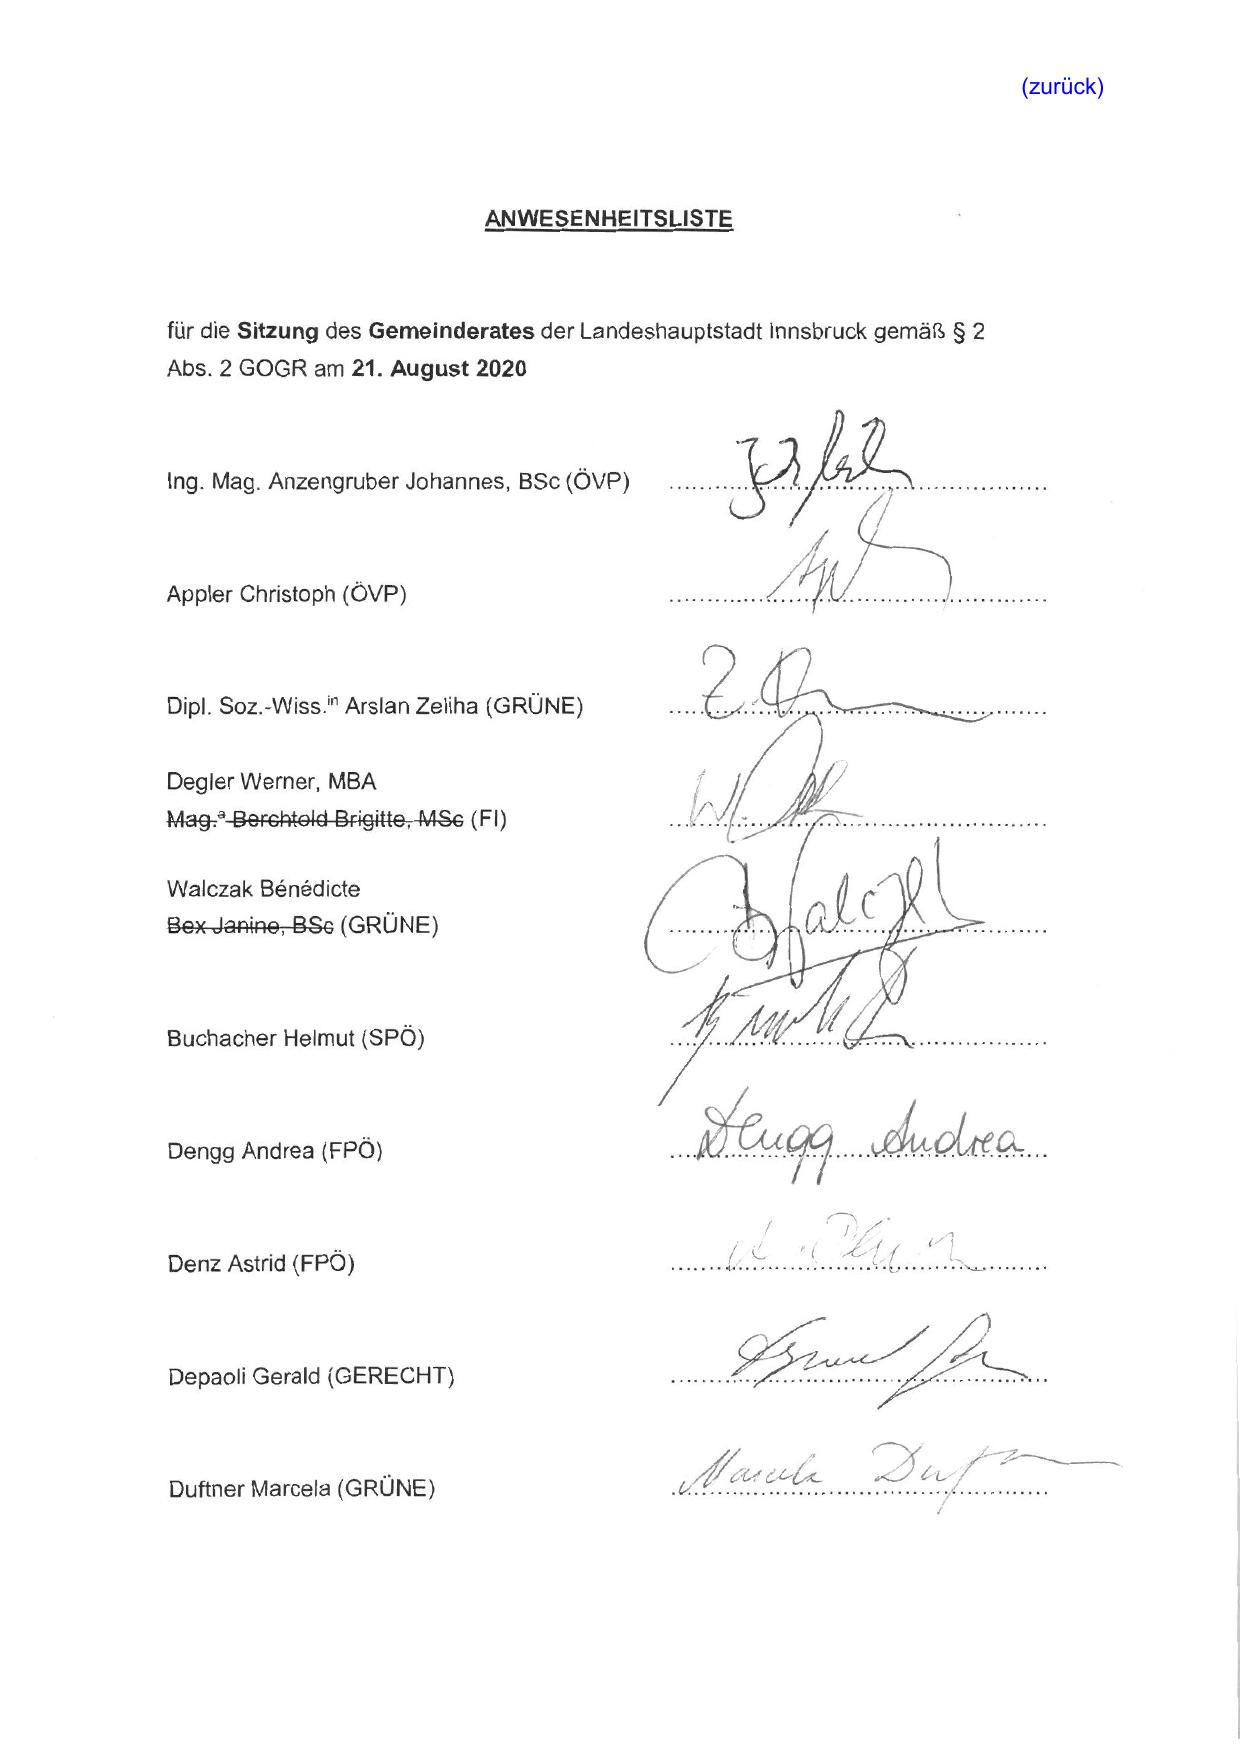 (zurück)
ANWESENHEITSLISTE
für die Sitzung des Gemeinderates der Landeshauptstadt Innsbruck gemäß § 2
Abs. 2 GOGR am 21. August 2020
Ing. Mag. Anzengruber Johannes, BSc (ÖVP)
Appler Christoph (ÖVP)
Dipl. Soz.-Wiss.in Arslan Zeliha (GRÜNE)
Degler Werner, MBA
Mag.a Berchtold Brigitte, MSc (FI)
Walczak Bénédicte
Bex Janine, BSc (GRÜNE)
Buchacher Helmut (SPÖ)
Dengg Andrea (FPÖ) Dengg Andrea
Denz Astrid (FPÖ)
Depaoli Gerald (GERECHT)
Duftner Marcela (GRÜNE) Marcela